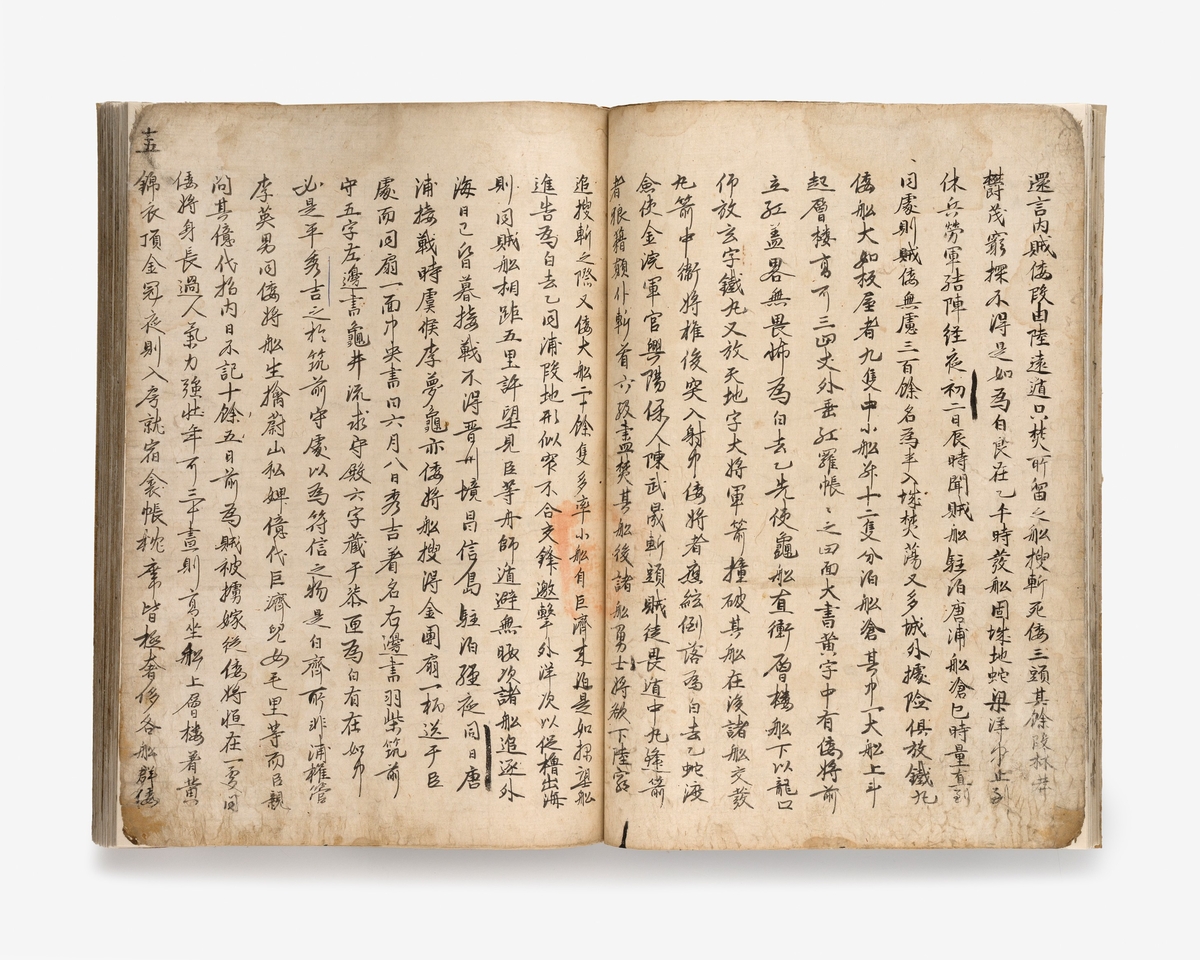 還言內賊倭段由陸遠遁□焚所留之船搜斬死倭三頭其餘段林木
欝茂窮探不得是如爲白良在乙午時發船固城地蛇梁洋中止到
休兵勞軍結陣經夜初二日辰時聞賊船駐泊唐浦船滄巳時量直到
同處則賊倭無慮三百餘名爲半入城焚蕩又多城外據險俱放鐵丸
倭船大如板屋者九隻中小船幷十二隻分泊船滄其中一大船上斗
起層樓高可三四丈外垂紅羅帳〻之四面大書黃字中有倭將前
立紅盖畧無畏怖爲白去乙先使龜船直衝層樓船下以龍口
仰放玄字鐵丸又放天地字大將軍箭撞破其船在後諸船交發
丸箭中衛將權俊突入射中倭將者應絃倒落爲白去乙蛇渡
僉使金浣軍官興陽保人陳武晟斬頭賊徒畏遁中丸逢箭
者狼籍顚仆斬首六級盡焚其船後諸船勇士將欲下陸窮
追搜斬之際又倭大船二十餘隻多率小船自巨濟來泊是如探望船
進告爲白去乙同浦段地形似窄不合交鋒邀擊外洋次以促櫓出海
則同賊船相距五里許望見臣等舟師遁避無暇次諸船追逐外
海日已昏暮接戰不得晋州境昌信島駐泊經夜同日唐
浦接戰時虞候李夢龜亦倭將船搜得金團扇一柄送于臣
處而同扇一面中央書曰六月八日秀吉著名右邊書羽柴筑前
守五字左邊書龜井流求守殿六字藏于漆匣爲白有在如中
必是平秀吉之於筑前守處以爲符信之物是白齊所非浦權管
李英男同倭將船生擒蔚山私婢億代巨濟兒女毛里等而臣親
問其億代招內日不記十餘五日前爲賊被擄嫁從倭將恒在一處同
倭將身長過人氣力強壯年可三十晝則高坐船上層樓着黃
錦衣頂金冠夜則入房就宿衾帳枕席皆極奢侈各船群倭
十五